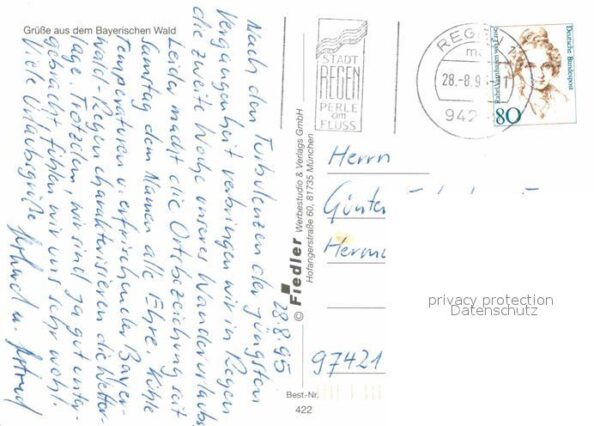 Grüße aus dem Bayerischen Wald
28.8.95
Nach den Turbulenzen der jüngsten
Vergangenheit verbringen wir in Regen
die zweite Woche unseres Wanderurlaubs
Leider macht die Ortsbezeichnung seit
Samstag dem Namen alle Ehre. Kühle
Temperaturen u. erfrischender Bayer-
wald-Regen charakterisieren die Wetter-
lage. Trotzdem, wir sind ja gut unter-
gebracht, fühlen wir uns sehr wohl.
Viele Urlaubsgrüße
© Fiedler Werbestudio & Verlags GmbH
Hofangerstraße 60, 81735 München
Best.-Nr.
422
STADT
REGEN
PERLE
am
FLUSS
28.-8.9
942
Deutsche Bundespost
80
Herrn
97421
privacy protection
Datenschutz